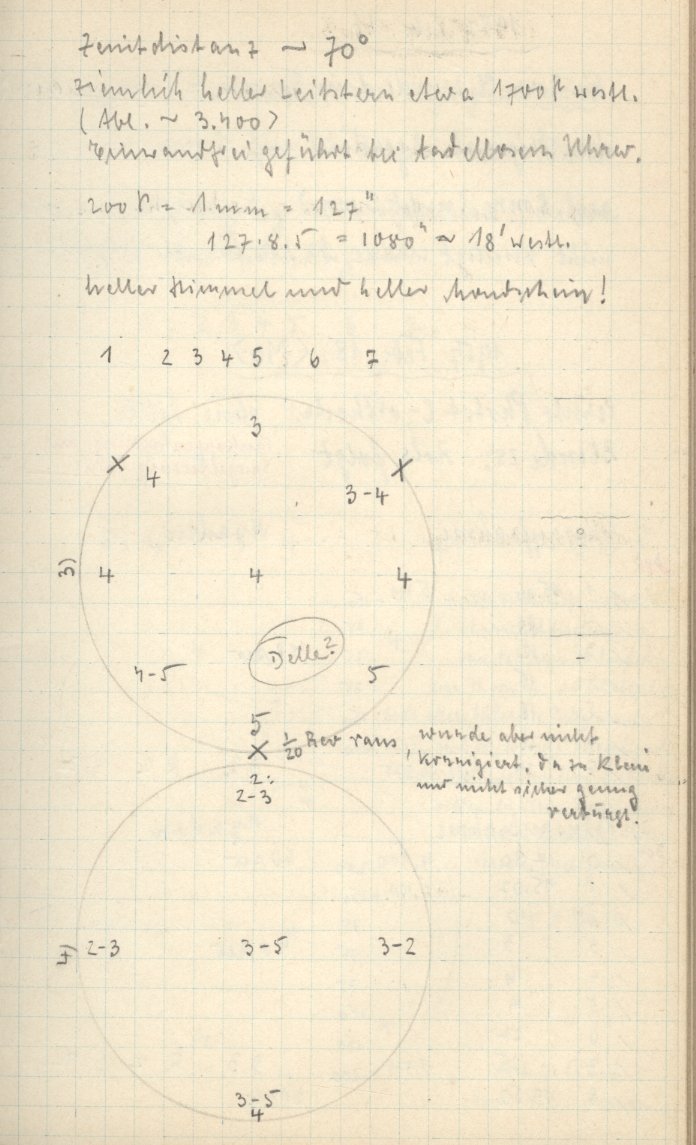 Zenitdistanz ~ 70°
Ziemlich heller Leitstern etwa 1700 westl.
(Abl. ~ 3.400)
Einwandfrei geführt bei tadellosem Uhrw.
200 = 1mm = 127"
127·8.5 = 1080" ~ 18' westl.
Heller Himmel und heller Mondschein!
1 2 3 4 5 6 7
3
× 4 ×
3-4
3) 4 4 4
Delle?
4-5 5
5
× 1/20 Rev raus, wurde aber nicht
korrigiert, da zu klein
und nicht sicher genug
verbürgt.
2:
2-3
4) 2-3 3-5 3-2
3-5
4